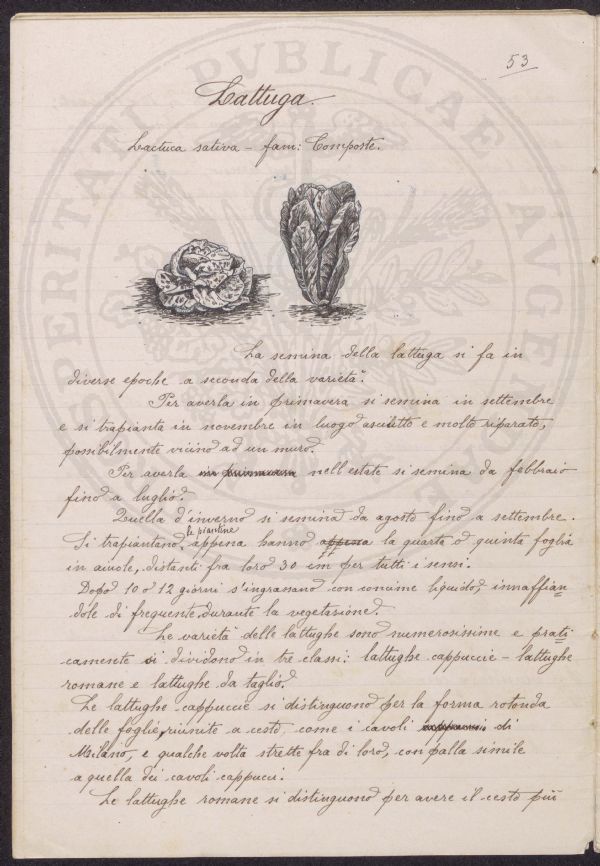 53
Lattuga.
Lactuca sativa – fam: Composte.
La semina della lattuga si fa in
diverse epoche a seconda della varietà.
Per averla in primavera si semina in settembre
e si trapianta in novembre in luogo asciutto e molto riparato,
possibilmente vicino ad un muro.
Per averla in primavera nell'estate si semina da febbraio
fino a luglio.
Quella d'inverno si semina da agosto fino a settembre.
le piantine
Si trapiantano, appena hanno appena la quarta o quinta foglia
in aiuole, distanti fra loro 30 cm per tutti i sensi.
Dopo 10 o 12 giorni s'ingrassano con concime liquido, innaffian-
dole di frequente, durante la vegetazione.
Le varietà delle lattughe sono numerosissime e prati-
camente si dividono in tre classi: lattughe cappuccie – lattughe
romane e lattughe da taglio.
Le lattughe cappuccie si distinguono per la forma rotonda
delle foglie, riunite a cesto, come i cavoli cappucci di
Milano, e qualche volta strette fra di loro, con palla simile
a quella dei cavoli cappucci.
Le lattughe romane si distinguono per avere il cesto più
PROSPERITATI PVBLICAE AVGENDAE